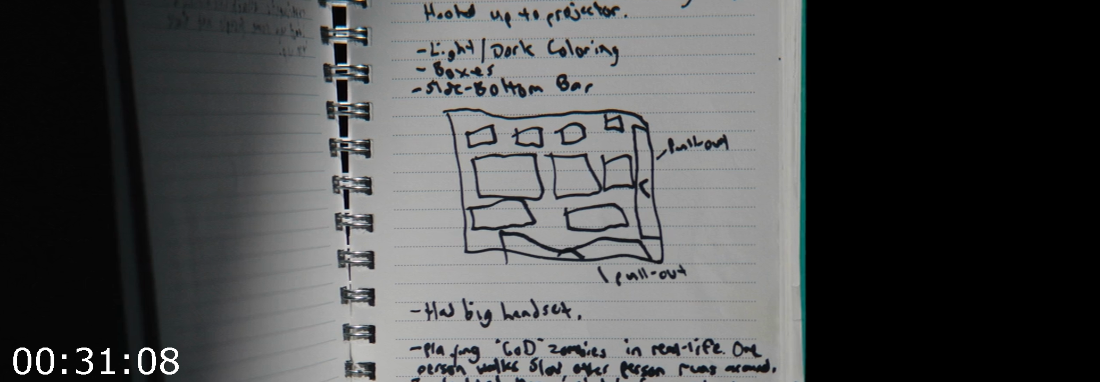 Hooked up to projector.
-Light/Dark Coloring
-Boxes
-Side-Bottom Bar
Pull-out
pull-out
-Had big headset.
-Playing "CoD" zombies in real-life. One
person walks slow other person runs around.
00:31:08